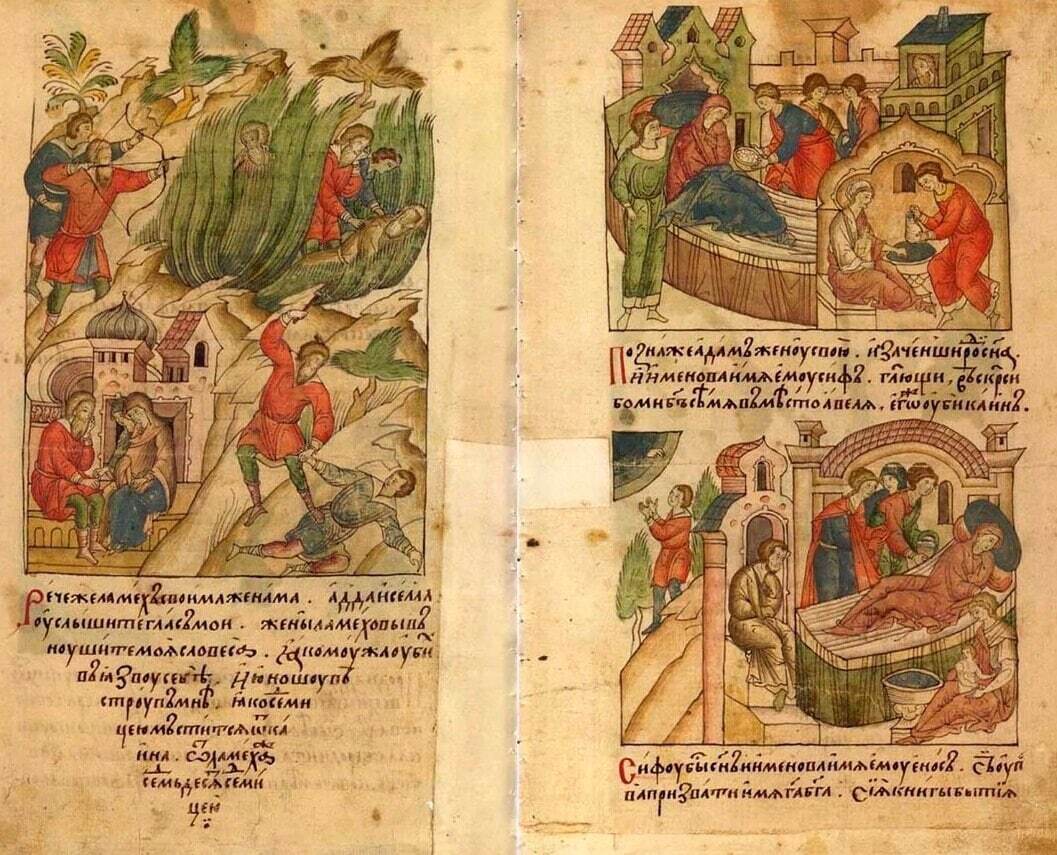 Рече же ламехъ своима женама . адда и селла
оуслышите гласъ мои . жены ламеховы в
ноушите моя словеса . яко моужа оуби
въ язвоу себѣ . и юношоу въ
строупъ мнѣ яко семи
цею мьститъся ѿ ка
ина . ѿ ламеха
семьдесѧ семи
цею
Позна же адамъ женоу свою . и заченши роди сна
и именова имя емоу сифъ . глющи , въскреси
бо ми бъ семя въмѣсто авеля . егоже оуби каинъ .
Сифоу бы снъ и именова имя емоу еносъ . съ оуп
ва призвати имя га бга . сия книгы бытия